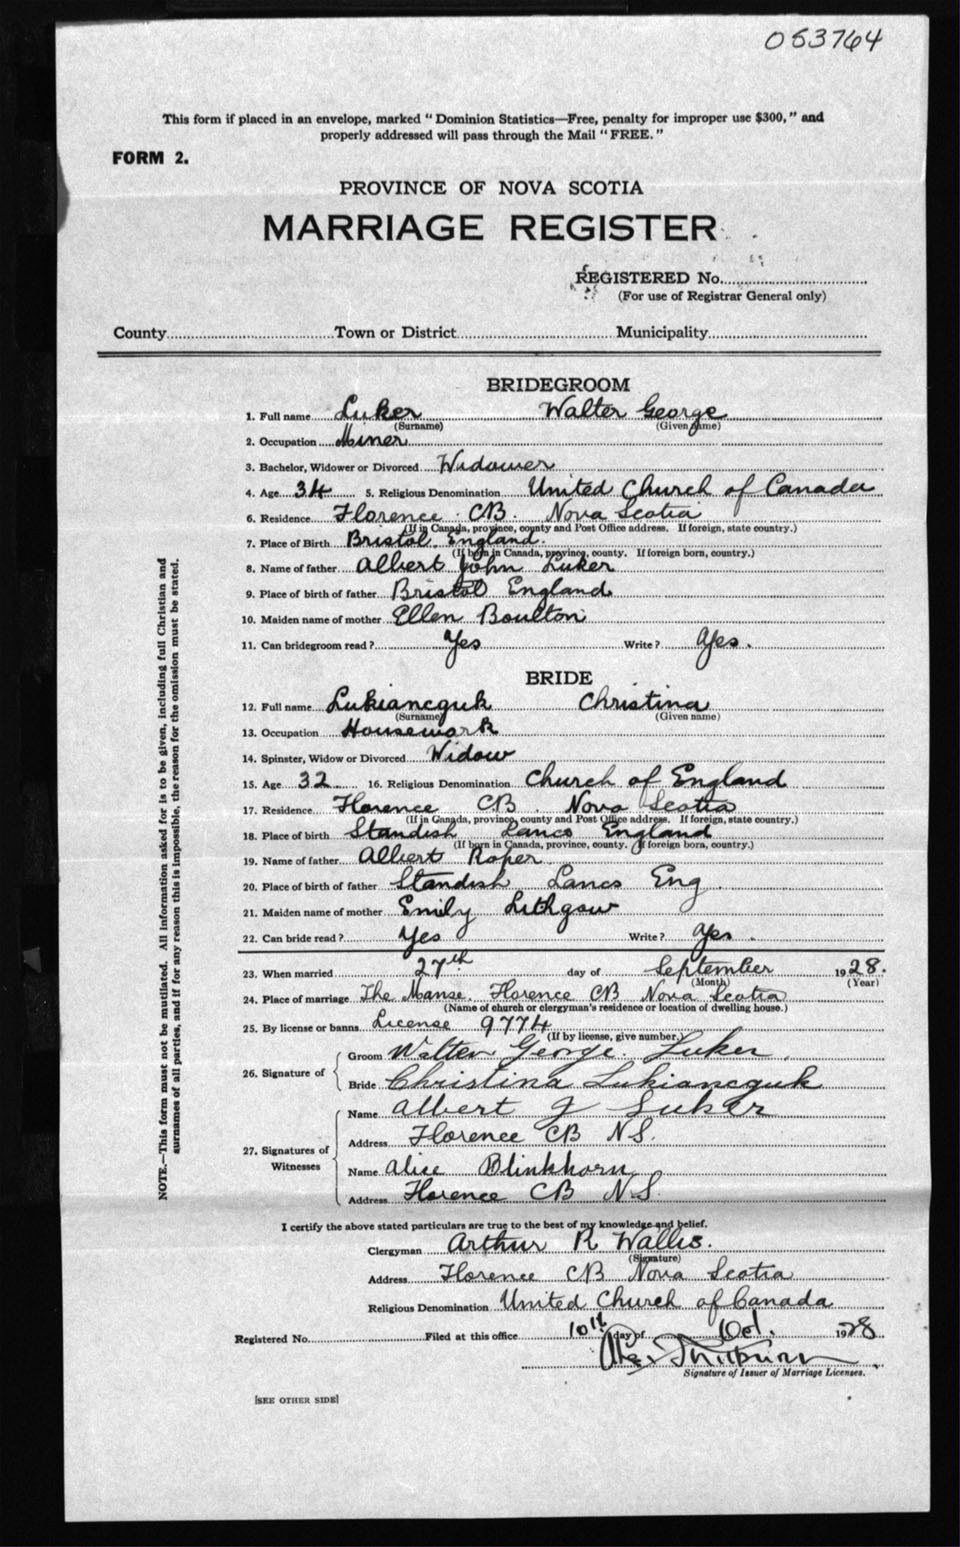 053764
This form if placed in an envelope, marked "Dominion Statistics—Free, penalty for improper use $300," and
properly addressed will pass through the Mail "FREE."
FORM 2.
PROVINCE OF NOVA SCOTIA
MARRIAGE REGISTER
REGISTERED No.
(For use of Registrar General only)
County Town or District Municipality
BRIDEGROOM
1. Full name Luker Walter George
(Surname) (Given name)
2. Occupation Miner
3. Bachelor, Widower or Divorced Widower
4. Age 34 5. Religious Denomination United Church of Canada
6. Residence Florence CB. Nova Scotia
(If in Canada, province, county and Post Office address. If foreign, state country.)
7. Place of Birth Bristol, England.
(If born in Canada, province, county. If foreign born, country.)
8. Name of father Albert John Luker
9. Place of birth of father Bristol England
10. Maiden name of mother Ellen Boulton
11. Can bridegroom read? Yes Write? Yes.
BRIDE
12. Full name Lukiancguk Christina
(Surname) (Given name)
13. Occupation Housework
14. Spinster, Widow or Divorced Widow
15. Age 32 16. Religious Denomination Church of England
17. Residence Florence CB. Nova Scotia
(If in Canada, province, county and Post Office address. If foreign, state country.)
18. Place of birth Standish Lancs England
(If born in Canada, province, county. If foreign born, country.)
19. Name of father Albert Roper
20. Place of birth of father Standish Lancs Eng
21. Maiden name of mother Emily Lithgow
22. Can bride read? Yes Write? Yes.
23. When married 27th day of September 1928.
(Month) (Year)
24. Place of marriage The Manse. Florence CB Nova Scotia
(Name of church or clergyman's residence or location of dwelling house.)
25. By license or banns License 9774
(If by license, give number.)
26. Signature of
Groom Walter George Luker.
Bride Christina Lukiancguk
27. Signatures of Witnesses
Name Albert J Luker
Address Florence CB N.S.
Name Alice Blinkhorn
Address Florence CB N.S.
I certify the above stated particulars are true to the best of my knowledge and belief.
Clergyman Arthur R Wallis.
(Signature)
Address Florence CB Nova Scotia
Religious Denomination United Church of Canada
Registered No. Filed at this office 10th day of Oct. 1928
Signature of Issuer of Marriage Licenses.
[SEE OTHER SIDE]
NOTE.—This form must not be mutilated. All information asked for is to be given, including full Christian and
surnames of all parties, and if for any reason this is impossible, the reason for the omission must be stated.